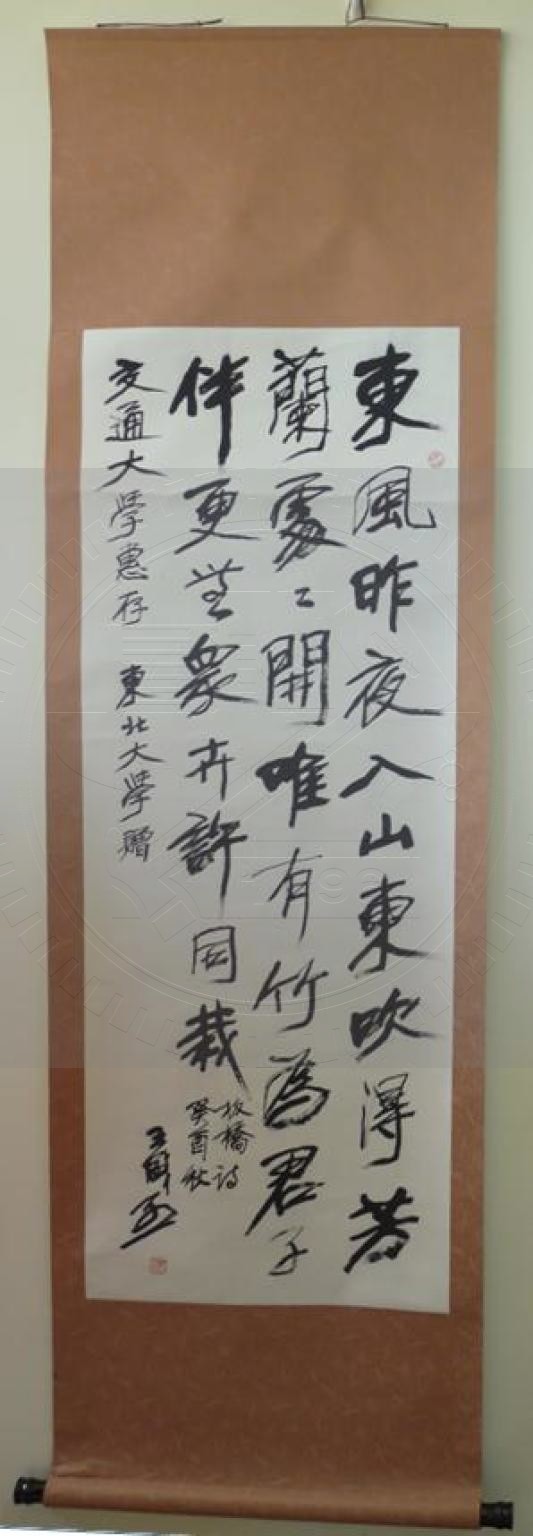 東風昨夜入山東吹得芳
蘭處〻開唯有竹為君子
伴更無眾卉許同栽
板橋詩
癸酉秋
王
交通大學惠存 東北大學贈